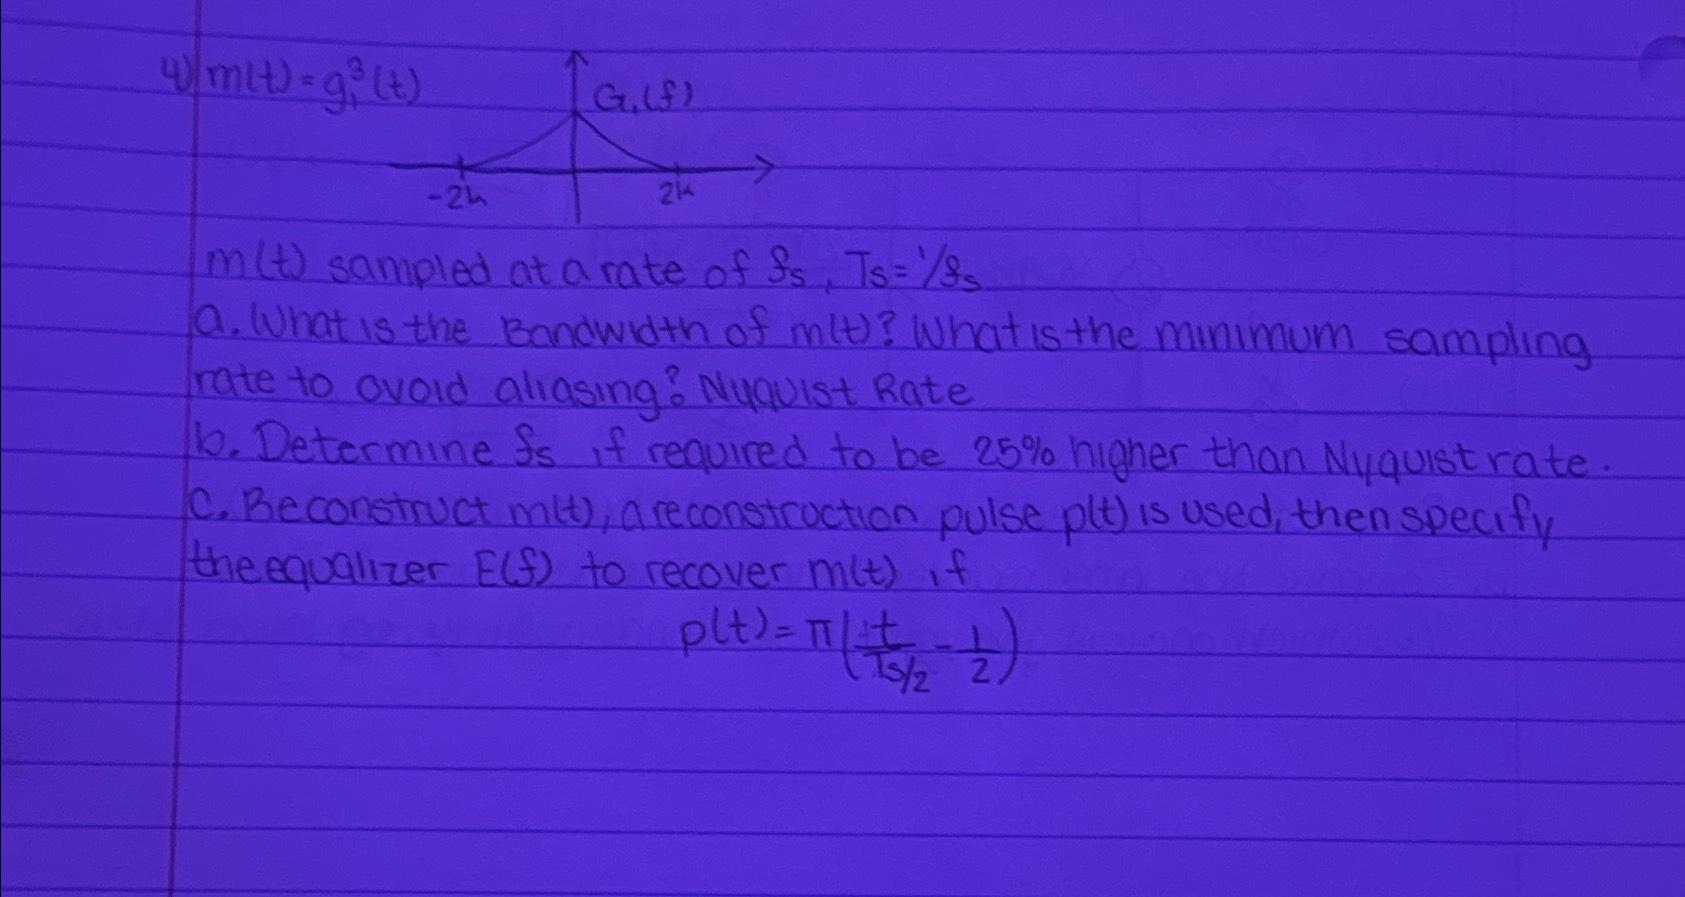 4) m(t) = g₁³(t)
G₁(f)
-2k 2k
m(t) sampled at a rate of fs, Ts = 1/fs
a. What is the Bandwidth of m(t)? What is the minimum sampling
rate to avoid aliasing? Nyquist Rate
b. Determine fs if required to be 25% higher than Nyquist rate.
C. Reconstruct m(t), a reconstruction pulse p(t) is used, then specify
the equalizer E(f) to recover m(t) if
p(t) = π(t/(Ts/2) - 1/2)